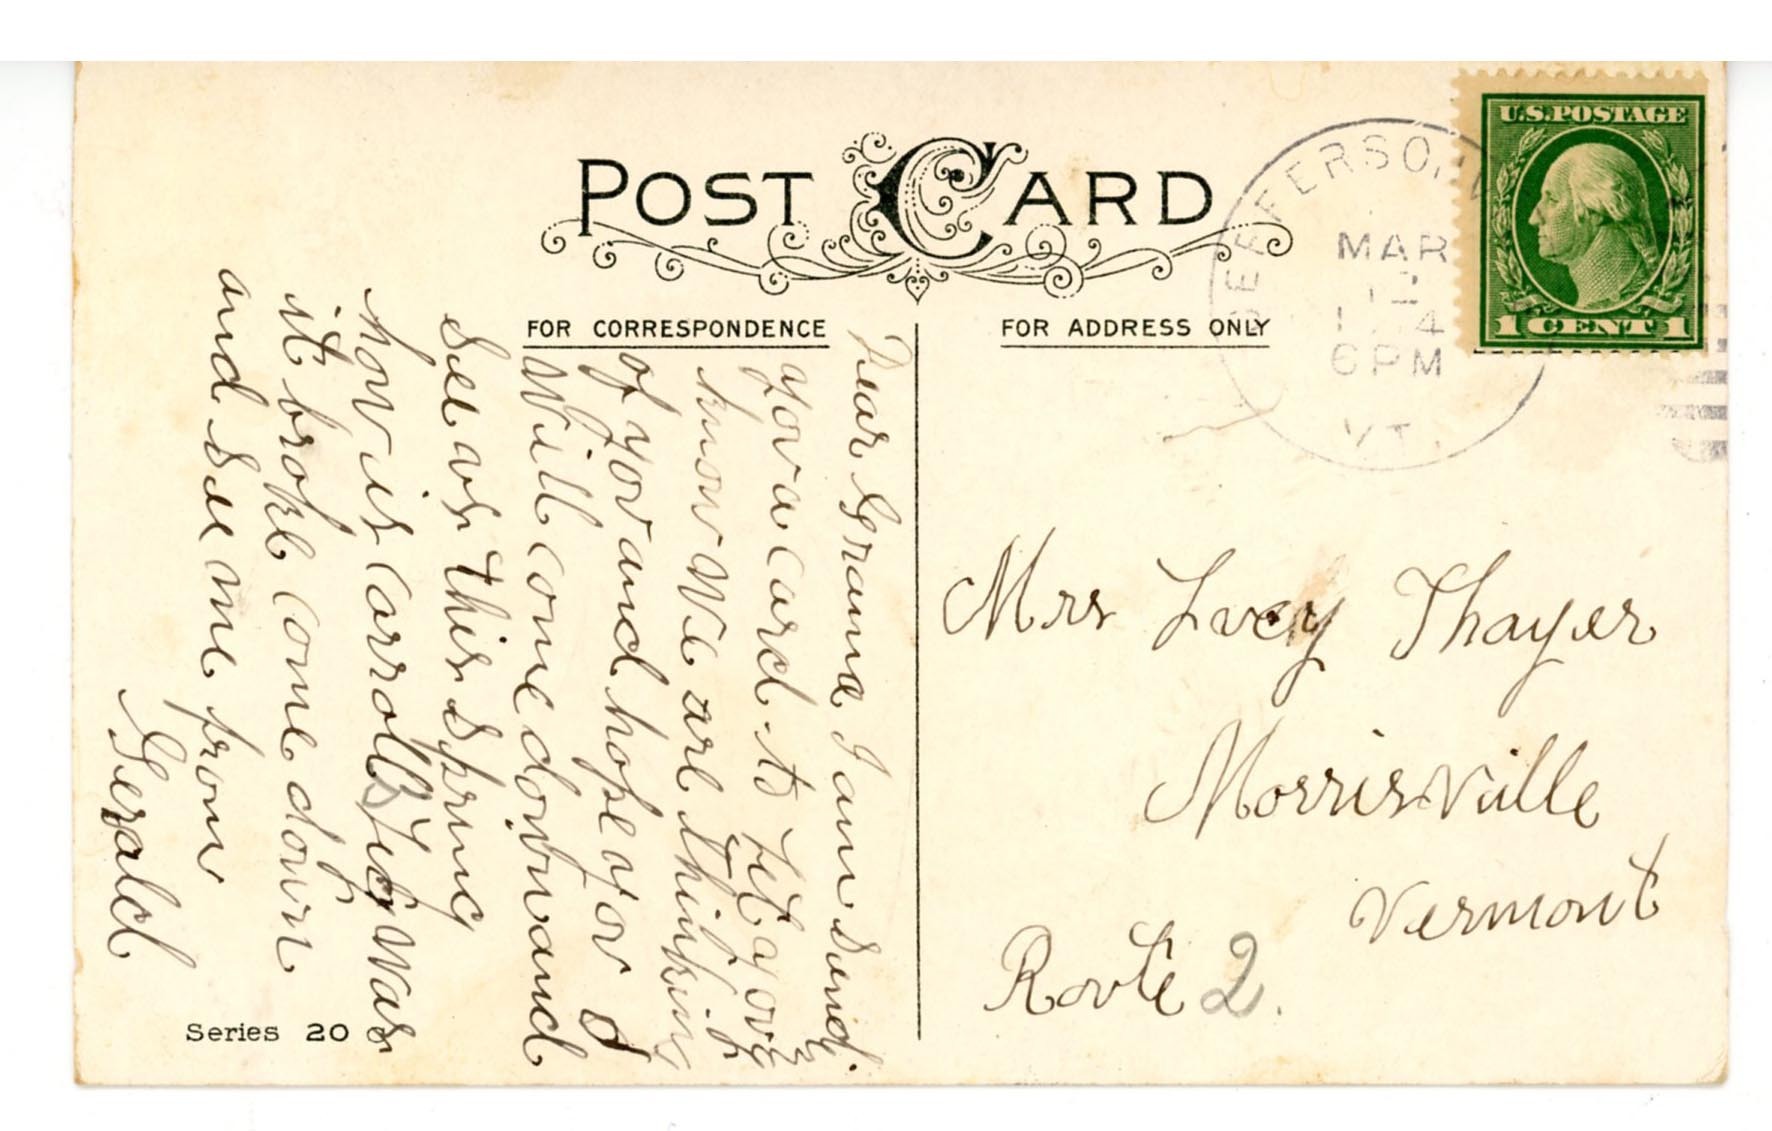 POST CARD
FOR CORRESPONDENCE
FOR ADDRESS ONLY
U.S. POSTAGE
1 CENT 1
JEFFERSON
MAR
6 PM
VT.
Dear Grama I am Send
you a card to let you
know we are thinking
of you and hope you
will come down and
see us this Spring
how is Carroll was
it broke come down
and see me from
Gerald
Mrs Lucy Thayer
Morrisville
Vermont
Route 2.
Series 20